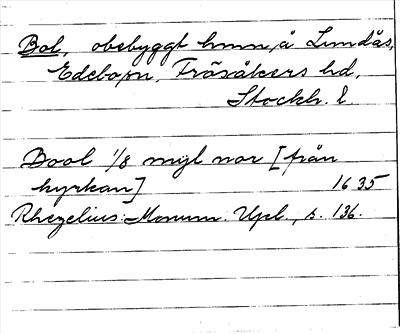 Bol, obebyggt hmn, å Lundås,
Edebo sn, Frösåkers hd,
Stockh. l.
Bool 1/8 mijl nor [från
kyrkan] 1635
Rhezelius: Monum. Upl., s. 136.